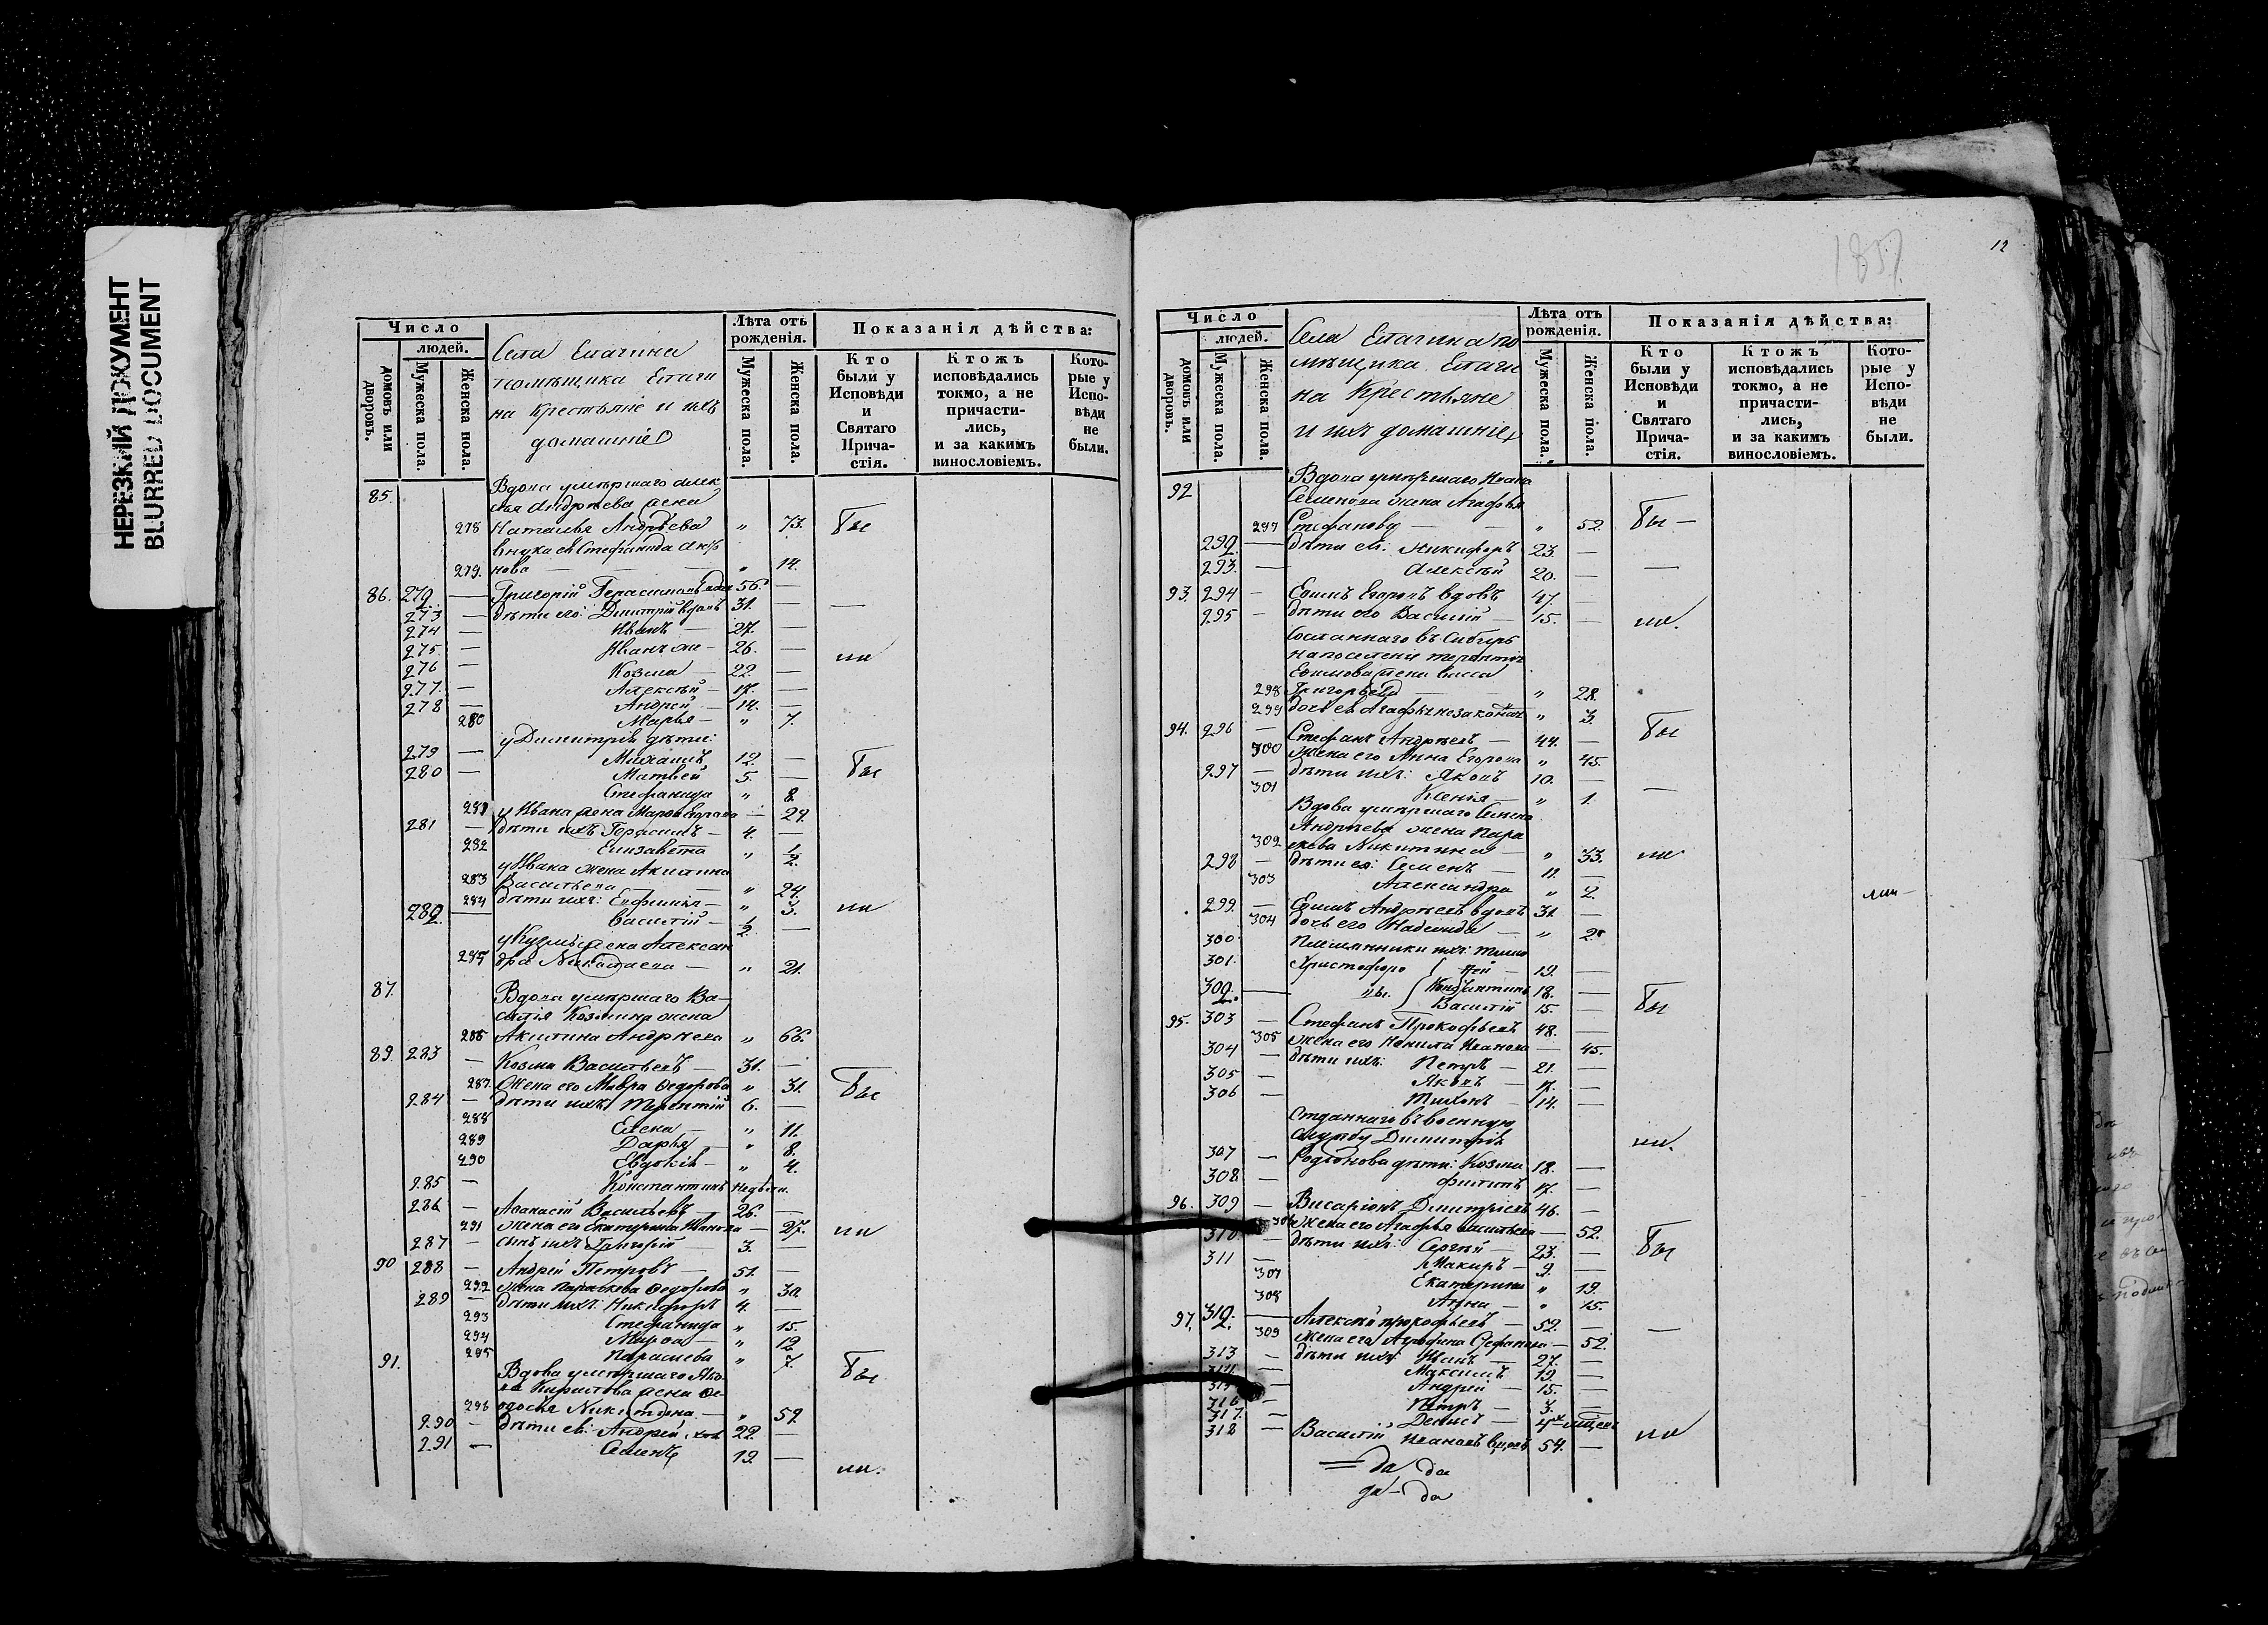 НЕРЕЗКИЙ ДОКУМЕНТ
BLURRED DOCUMENT
Число
людей.
домовъ или дворовъ.
Мужеска пола.
Женска пола.
Села Елагина
помѣщика Елаги
на крестьяне и ихъ
домашніе
Лѣта отъ рожденія.
Мужеска пола.
Женска пола.
Показанія дѣйства:
Кто были у Исповѣди и Святаго Прича- стія.
Ктожъ исповѣдались токмо, а не причасти- лись, и за какимъ винословіемъ.
Кото- рые у Испо- вѣди не были.
85. Вдова умершаго Алек
сѣя Андреева жена
278 Наталья Андреева " 73. Бы
внука ея Стефанида
279. нова — " 14.
86. 272 — Григорій Герасимовъ вдов 56. —
273 — дѣти его: Димитрій вдовъ 31. —
274 — Иванъ — 27. —
275. — Иванъ же — 26. — ли
276 — Козма — 22. —
277. — Алексѣй — 17. —
278 — Андрей — 14. —
280 Марья — " 7.
у Димитрія дѣти:
279 — Михаилъ 12. —
280 — Матвей 5. — Бы
Стефанида " 8.
281 у Ивана жена Марфа — 24.
281 — дѣти ихъ Герасимъ — 4. —
282 Елизавета " 1/2.
у Ивана жена Акилина
283 Васильева — " 24.
284 дѣти ихъ: Евфимія — " 3. ли
282 — Василій — 1/2. —
у Кузмы жена Алексан
285 дра Николаева — " 21.
87. Вдова умершаго Ва-
силія Козмина жена
286 Акилина Андреева " 66.
89. 283 — Козма Васильевъ — 31. —
287. Жена его Мавра Федорова " 31. Бы
284 — дѣти ихъ: Терентій 6. —
288 Елена — " 11.
289 Дарья — " 8.
290 Евдокія — " 4.
285 — Константинъ недѣли.
286 — Афанасій Васильевъ — 26. —
291 Жена его Екатерина Иванова — 27. ли
287 — сынъ ихъ Григорій — 3. —
90 288 — Андрей Петровъ — 51. —
292 Жена Параскева Федорова " 30
289 — дѣти ихъ: Никифоръ 4. —
293 Стефанида " 15.
294 Марфа — " 12.
295 Параскева " 7.
91. Вдова умершаго Яко-
ва Кирилова жена Фе- Бы
296 одосья Никитина — " 52.
290 — дѣти ея: Андрей, хол 22. —
291 — Семенъ 19. —
ли.
1857
12
Число
людей.
домовъ или дворовъ.
Мужеска пола.
Женска пола.
Села Елагина по
мѣщика Елаги
на Крестьяне
и ихъ домашніе
Лѣта отъ рожденія.
Мужеска пола.
Женска пола.
Показанія дѣйства:
Кто были у Исповѣди и Святаго Прича- стія.
Ктожъ исповѣдались токмо, а не причасти- лись, и за какимъ винословіемъ.
Кото- рые у Испо- вѣди не были.
92 Вдова умершаго Ивана
Семенова жена Агафья
297 Стефанову — " 52. Бы —
292. — дѣти ея: Никифоръ 23. —
293. — Алексѣй 20. — —
93. 294 — Егоровъ вдовъ 47. —
295 — дѣти его Василій — 15. — ли.
Сосланнаго въ Сибирь
на поселеніе
жена Васса
298 Григорьева — " 28.
299 дочь ея " 3.
94. 296 — Стефанъ Андреевъ — 44. — Бы
300 жена его Анна Егорова " 45.
297 — дѣти ихъ: Яковъ 10. —
301 Ксенія — " 1. —
Вдова умершаго Семена
Андреева жена Пара
302 скева Никитина — " 33. ли
298 — дѣти ея: Семенъ — 11. —
303 Александра " 2.
ли —
299. — Андреевъ вдовъ 31. —
304 дочь его Надежда — " 2.
300 Племянники ихъ: Тимо
301. Христофоро { фей — 19. —
302. — вы. { Константинъ 18. —
Василій 15. — Бы
95. 303 — Стефанъ Прокофьевъ 48. —
305 жена его Иванова — 45.
304 — дѣти ихъ: Петръ — 21. —
305 — Яковъ — 17. —
306 — Тихонъ — 14. —
отданнаго въ военную
службу Димитрія ли.
307 — Родіонова дѣти: Козма 18. —
308. — Филипъ 17. —
96. 309 — Висаріонъ Димитріевъ 46. —
306 жена его Агафья Васильева — 52.
310 — дѣти ихъ: Сергѣй — 23. — Бы
311 — Макиръ — 9. —
307 Екатерина " 19.
308 Анна — " 15.
97. 312. — Алексѣй Прокофьевъ — 52. — —
309 жена его Стефанова — 52.
313 — дѣти ихъ: Иванъ — 27. —
314. — Максимъ 19. —
315 — Андрей — 15. —
316 — Петръ — 3. —
317. — Денисъ —
318 — Василій Ивановъ вдовъ 54. — ли
= да да
да — да